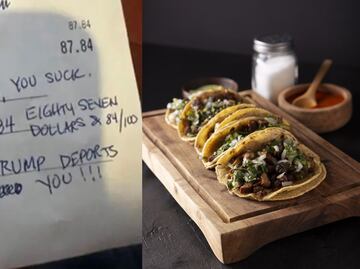 87.84
87.84
YOU SUCK.
84 EIGHTY SEVEN
DOLLARS & 84/100
TRUMP DEPORTS
YOU !!!